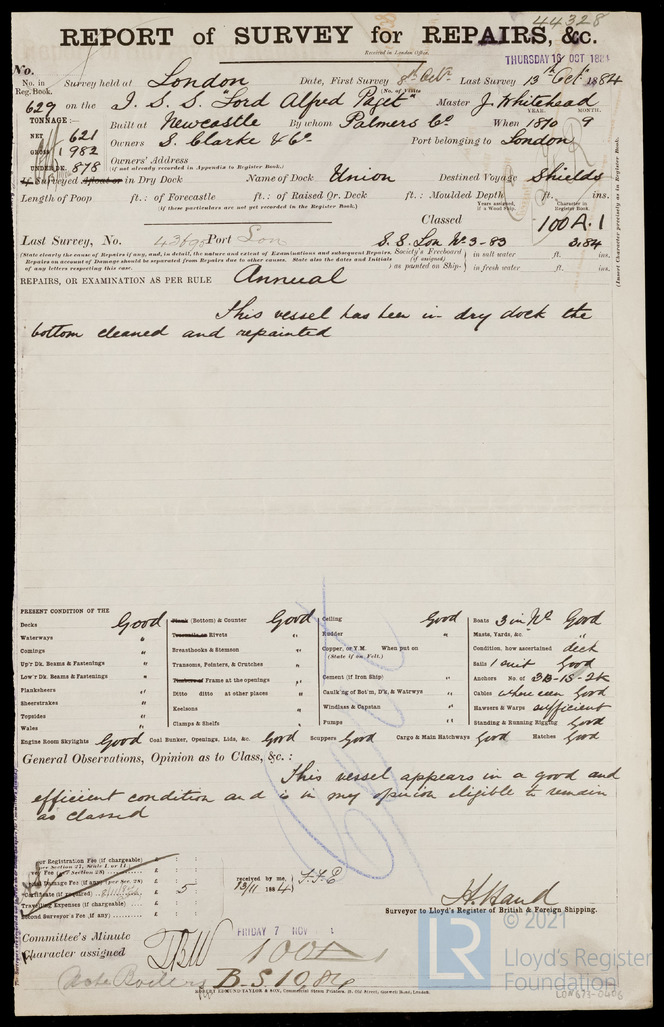 44328
REPORT of SURVEY for REPAIRS, &c.
Received in London Office,
THURSDAY 16 OCT 188
No.
No. in Reg. Book.
Survey held at London Date, First Survey 8th Octr. Last Survey 13th Octr. 1884
(No. of Visits
629 on the I. S. S. "Lord Alfred Paget" Master J. Whitehead
TONNAGE:—
YEAR. MONTH.
NET 621
Built at Newcastle By whom Palmers Co When 1870 9
GROSS 982
Owners S. Clarke & Co. Port belonging to London
UNDER DK. 878
Owners' Address
(If not already recorded in Appendix to Register Book.)
If Surveyed Afloat or in Dry Dock Name of Dock Union Destined Voyage Shields
Length of Poop ft.: of Forecastle ft.: of Raised Qr. Deck ft.: Moulded Depth ft. ins.
(If these particulars are not yet recorded in the Register Book.)
Years assigned, if a Wood Ship.
Character in Register Book
Classed 100 A.1
Last Survey, No. Port Lon S. S. Lon No. 3-83 3,84
(State clearly the cause of Repairs if any, and, in detail, the nature and extent of Examinations and subsequent Repairs.
Repairs on account of Damage should be separated from Repairs due to other causes. State also the dates and Initials
of any letters respecting this case.
Society's Freeboard (if assigned) as painted on Ship- in salt water ft. ins.
in fresh water ft. ins.
(Insert Character precisely as in Register Book.
REPAIRS, OR EXAMINATION AS PER RULE Annual
This vessel has been in dry dock the
bottom cleaned and repainted
PRESENT CONDITION OF THE
Decks Good
Waterways "
Comings "
Up'r Dk. Beams & Fastenings "
Low'r Dk. Beams & Fastenings "
Planksheers "
Sheerstrakes "
Topsides "
Wales "
Plank (Bottom) & Counter Good
Treenails or Rivets "
Breasthooks & Stemson "
Transoms, Pointers, & Crutches "
Timbers of Frame at the openings "
Ditto ditto at other places "
Keelsons "
Clamps & Shelfs "
Ceiling Good
Rudder "
Copper, or Y.M. When put on
(State if on Felt.)
Cement (if Iron Ship) "
Caulk'ng of Bot'm, D'k, & Watrwys "
Windlass & Capstan "
Pumps "
Boats 3 in No. Good
Masts, Yards, &c. "
Condition, how ascertained deck
Sails 1 suit Good
Anchors No. of 3B-1S-2K
Cables where seen Good
Hawsers & Warps sufficient
Standing & Running Rigging Good
Engine Room Skylights Good Coal Bunker, Openings, Lids, &c. Good Scuppers Good Cargo & Main Hatchways Good Hatches Good
General Observations, Opinion as to Class, &c.:
This vessel appears in a good and
efficient condition and is in my opinion eligible to remain
as classed
Registration Fee (if chargeable) £ : :
per Section 27, Scale I. or II.)
Fee (per Section 28) £ : :
Damage Fee (if any) (per Sec. 28) £ : :
Certificate (if required) £ : 5
Travelling Expenses (if chargeable) £ : :
Second Surveyor's Fee (if any) £ : :
received by me,
13/11 1884
H. Hand
Surveyor to Lloyd's Register of British & Foreign Shipping.
Committee's Minute FRIDAY 7 NOV
Character assigned 100A1
Note Boilers B.S. 10,84
ROBERT EDMUND TAYLOR & SON, Commercial Steam Printers, 19, Old Street, Goswell Road, London.
© 2021
LR
Lloyd's Register
Foundation
LON673-0406